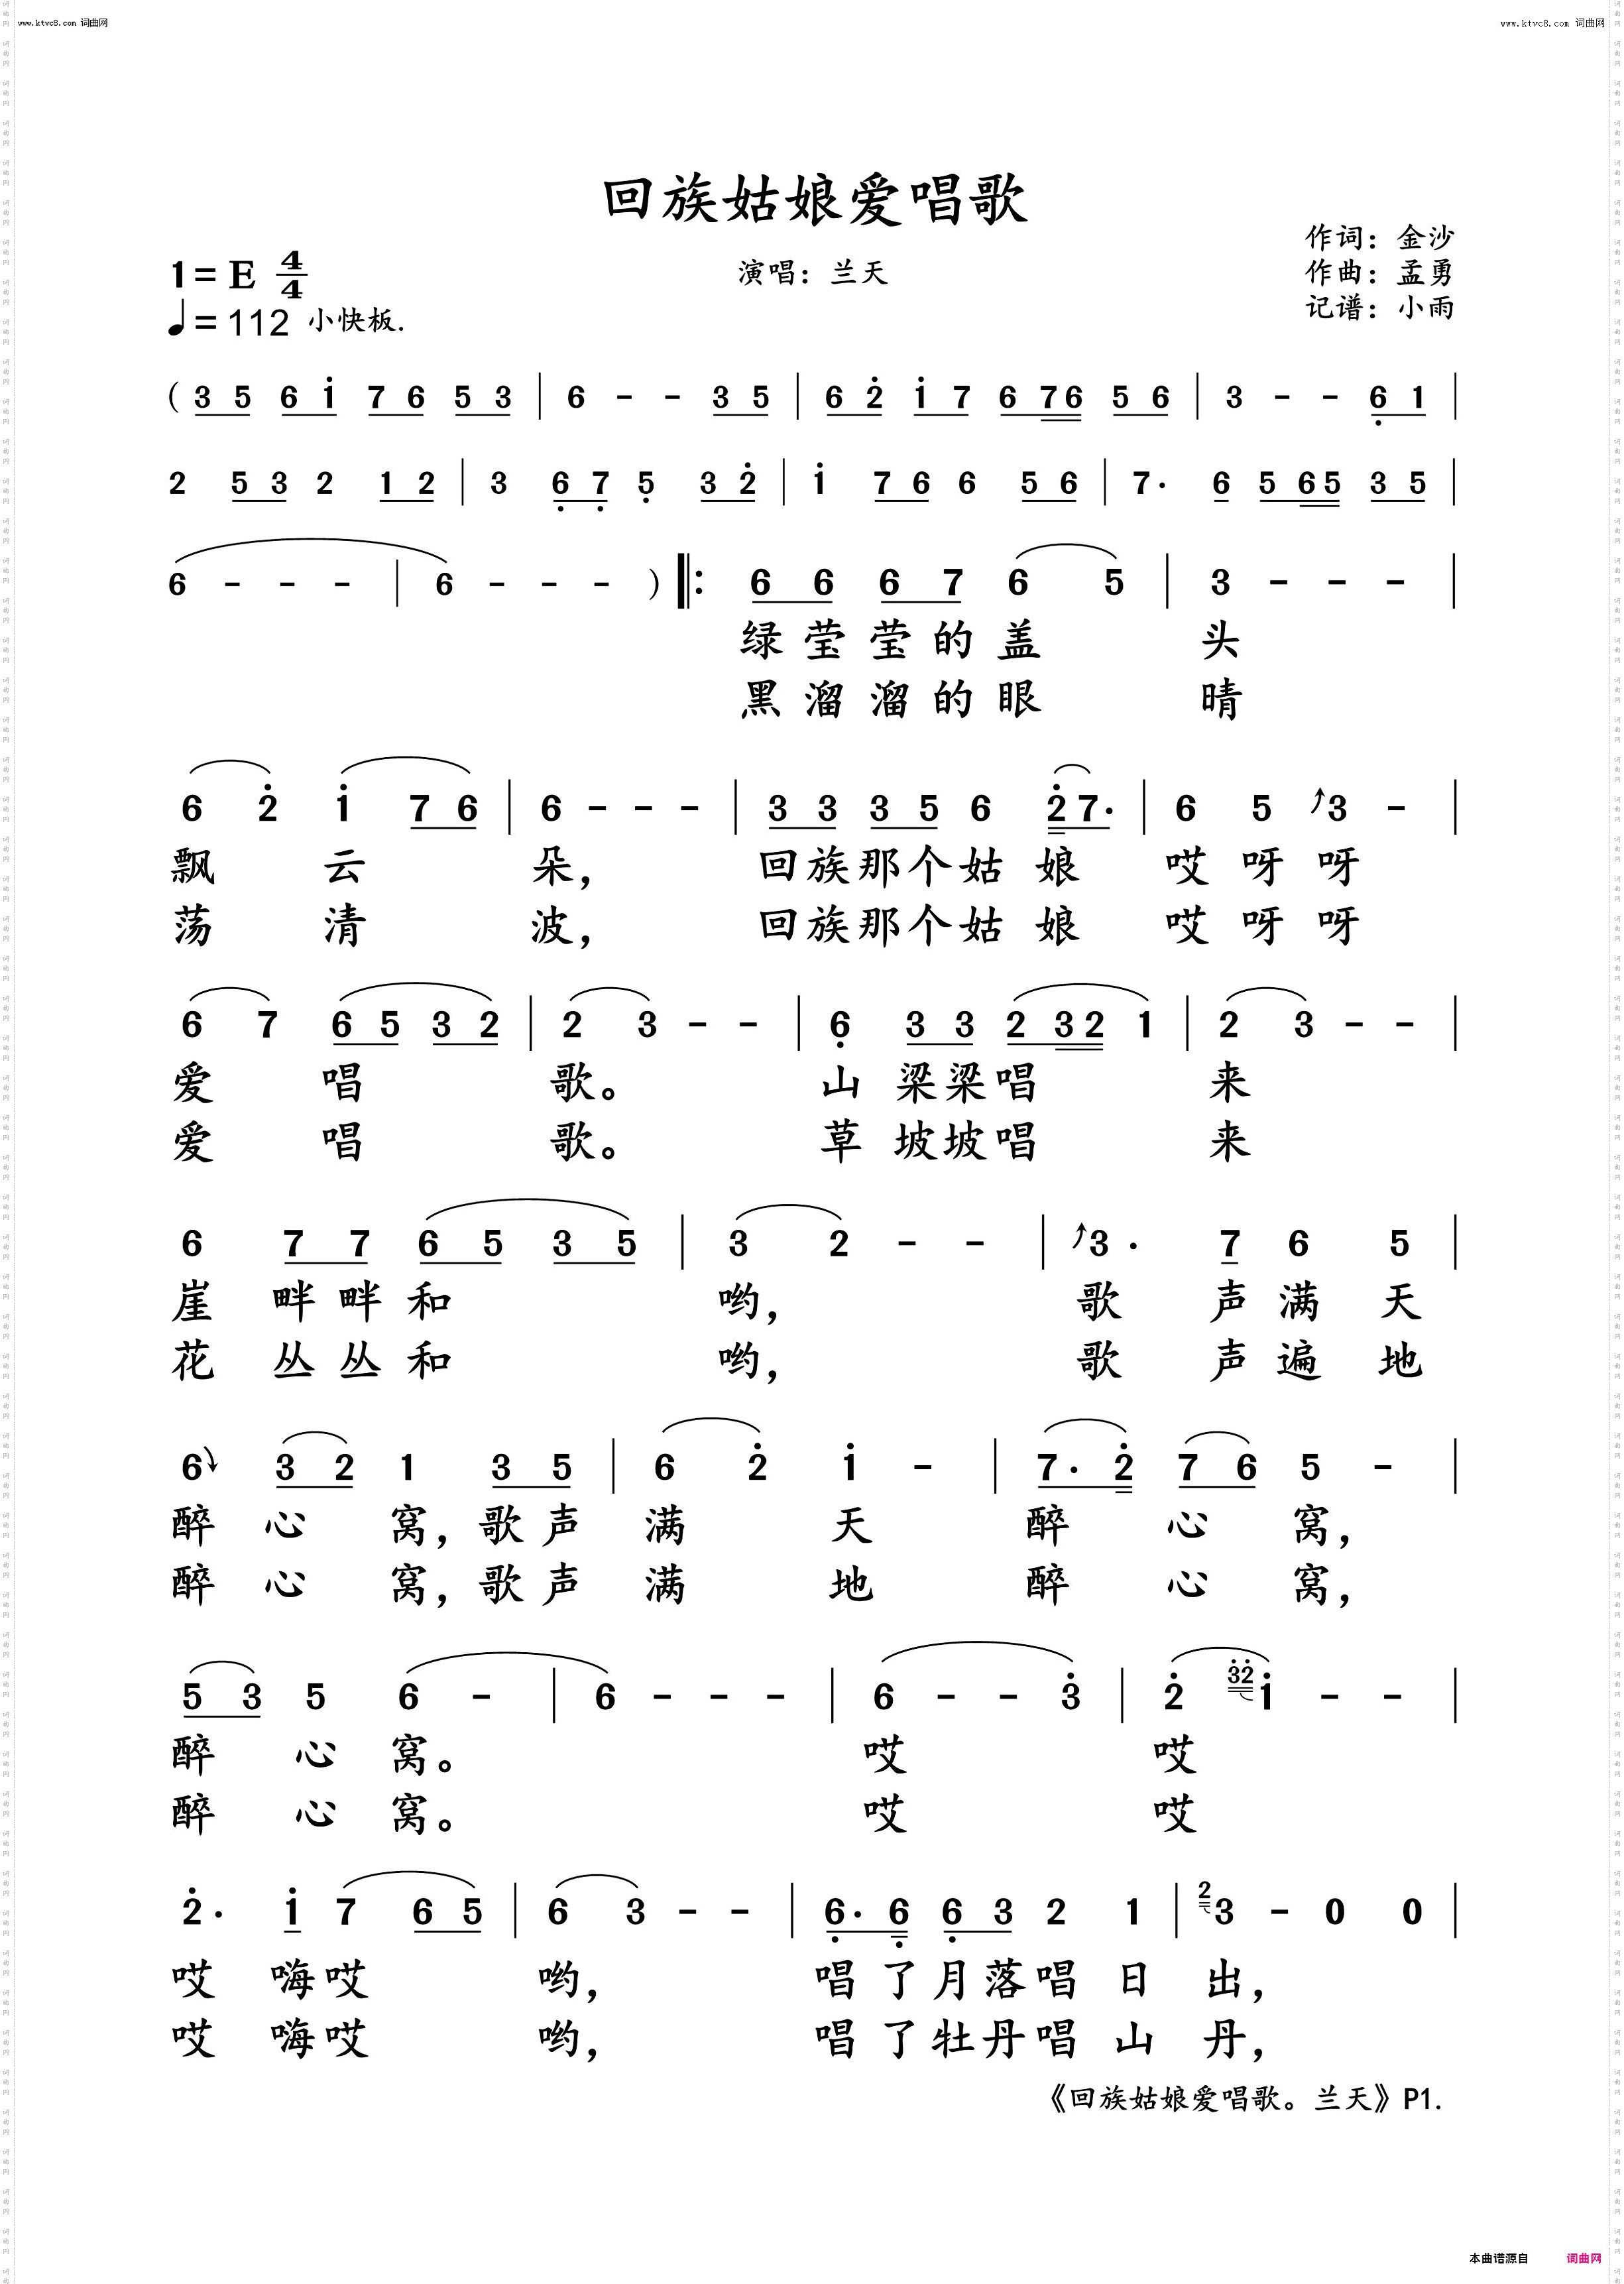 www.ktvc8.com 词曲网
www.ktvc8.com 词曲网
回族姑娘爱唱歌
作词：金沙
1=E 4/4 演唱：兰天 作曲：孟勇
♩=112 小快板. 记谱：小雨
( 3 5 6 i̇ 7 6 5 3 | 6 - - 3 5 | 6 2̇ i̇ 7 6 7 6 5 6 | 3 - - 6̣ 1 |
2 5 3 2 1 2 | 3 6̣ 7̣ 5̣ 3 2̇ | i̇ 7 6 6 5 6 | 7· 6 5 6 5 3 5 |
6 - - - | 6 - - - ) ‖: 6 6 6 7 6 5 | 3 - - - |
绿莹莹的盖 头
黑溜溜的眼 晴
6 2̇ i̇ 7 6 | 6 - - - | 3 3 3 5 6 2̇ 7· | 6 5 3 - |
飘 云 朵， 回族那个姑 娘 哎呀呀
荡 清 波， 回族那个姑 娘 哎呀呀
6 7 6 5 3 2 | 2 3 - - | 6̣ 3 3 2 3 2 1 | 2 3 - - |
爱 唱 歌。 山 梁梁唱 来
爱 唱 歌。 草 坡坡唱 来
6 7 7 6 5 3 5 | 3 2 - - | 3· 7 6 5 |
崖 畔畔和 哟， 歌 声满 天
花 丛丛和 哟， 歌 声遍 地
6 3 2 1 3 5 | 6 2̇ i̇ - | 7· 2̇ 7 6 5 - |
醉 心 窝，歌声 满 天 醉 心 窝，
醉 心 窝，歌声 满 地 醉 心 窝，
5 3 5 6 - | 6 - - - | 6 - - 3̇ | 2̇ 3̇2̇ i̇ - - |
醉 心 窝。 哎 哎
醉 心 窝。 哎 哎
2̇· i̇ 7 6 5 | 6 3 - - | 6̣· 6̣ 6̣ 3 2 1 | 2 3 - 0 0 |
哎 嗨哎 哟， 唱了月落唱日 出，
哎 嗨哎 哟， 唱了牡丹唱山 丹，
《回族姑娘爱唱歌。兰天》P1.
本曲谱源自 词曲网